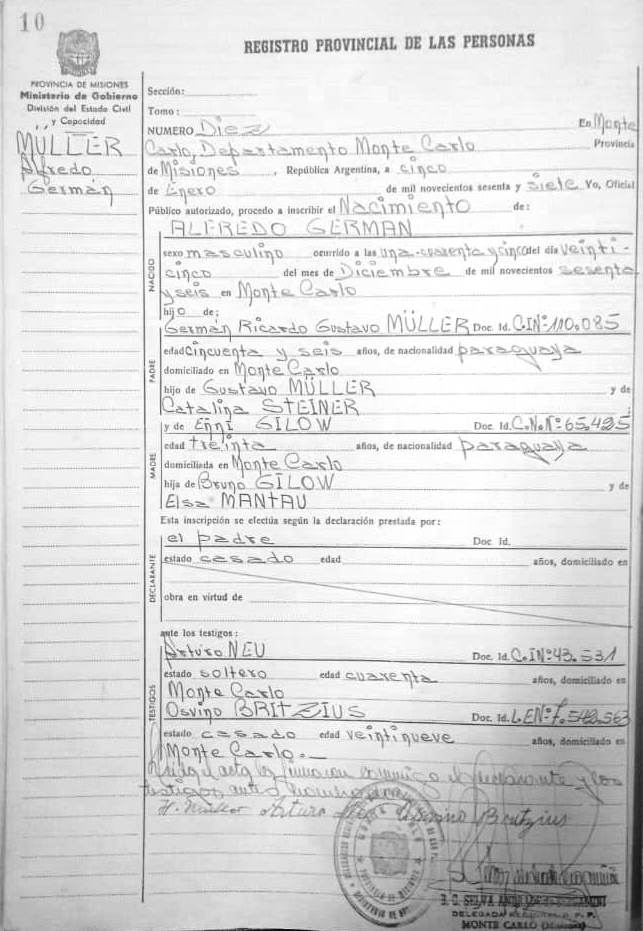 10
REGISTRO PROVINCIAL DE LAS PERSONAS
PROVINCIA DE MISIONES
Ministerio de Gobierno
División del Estado Civil
y Capacidad
MÜLLER
Alfredo
Germán
Sección:
Tomo:
NUMERO Diez En Monte
Carlo, Departamento Monte Carlo Provincia
de Misiones, República Argentina, a cinco
de Enero de mil novecientos sesenta y siete Vo, Oficial
Público autorizado, procedo a inscribir el Nacimiento de:
ALFREDO GERMAN
NACIDO
sexo masculino ocurrido a las una-cuarenta y cinco del día veinti-
cinco del mes de Diciembre de mil novecientos sesenta
y seis en Monte Carlo
hijo de:
Germán Ricardo Gustavo MÜLLER Doc. Id. C.IN:110.085
PADRE
edad cincuenta y seis años, de nacionalidad paraguaya
domiciliado en Monte Carlo
hijo de Gustavo MÜLLER y de
Catalina STEINER
y de Enni GILOW Doc. Id. C.N.Nº65.425
MADRE
edad treinta años, de nacionalidad paraguaya
domiciliada en Monte Carlo
hija de Bruno GILOW y de
Elsa MANTAU
Esta inscripción se efectúa según la declaración prestada por:
DECLARANTE
el padre Doc. Id.
estado casado edad años, domiciliado en
obra en virtud de
ante los testigos:
TESTIGOS
Arturo NEU Doc. Id. C.INº43.531
estado soltero edad cuarenta años, domiciliado en
Monte Carlo
Osvino BRITZIUS Doc. Id. L.ENº7.542.563
estado casado edad veintinueve años, domiciliado en
Monte Carlo.-
el acta la firmaron conmigo el declarante y los
testigos antes
H. Müller Arturo Neu Osvino Britzius
DELEGADA
MONTE CARLO (Misiones)